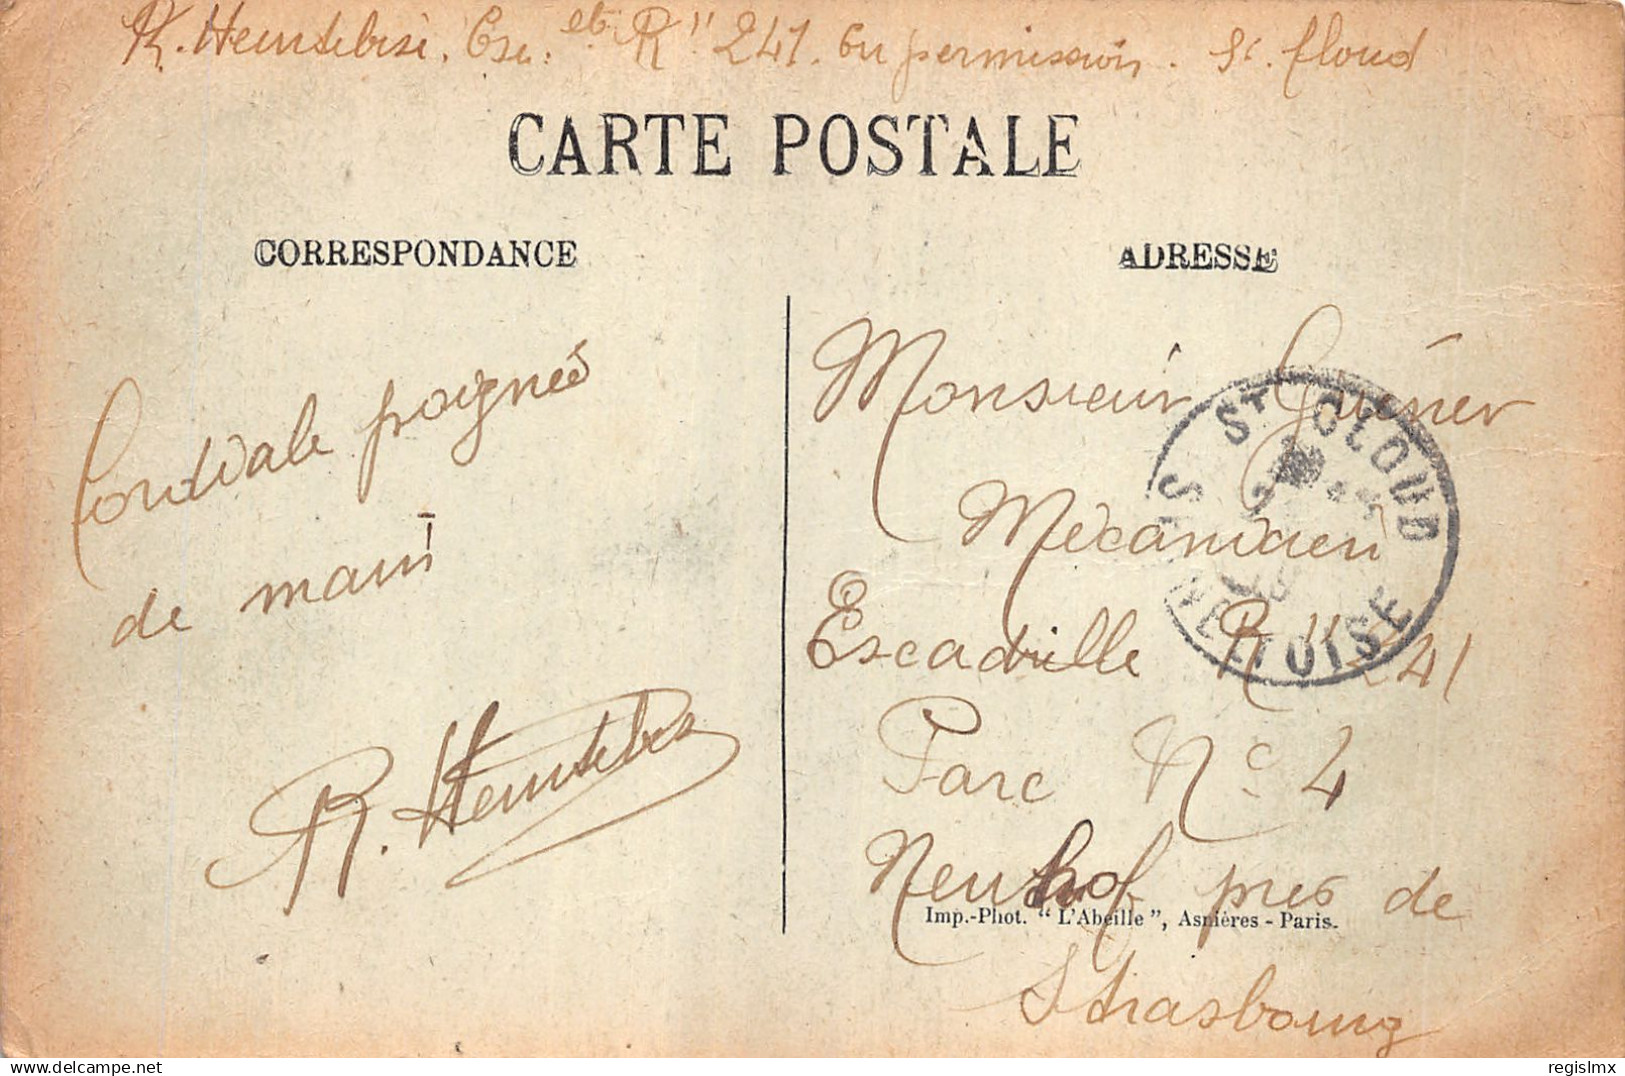 R. Hentebise, Esc: et R" 241. en permission. St. Cloud
CARTE POSTALE
CORRESPONDANCE
ADRESSE
Cordiale poignée
de main
Monsieur Guéner
Mécanicien
Escadrille R" 241
Parc N° 4
Neuhof près de
Strasbourg
ST CLOUD
SNE ET OISE
Imp.-Phot. "L'Abeille", Asnières - Paris.
delcampe.net
regislmx